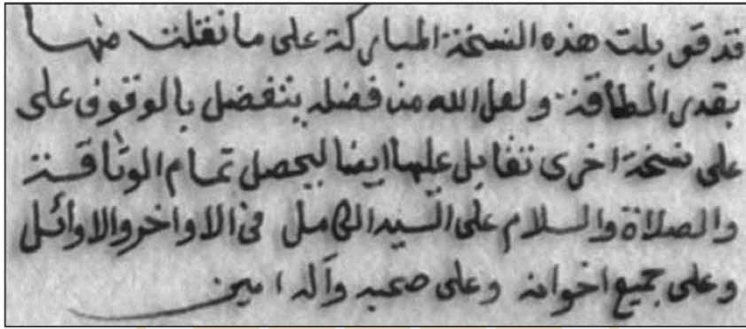 قد قوبلت هذه النسخة المباركة على ما نقلت منها
بقدر الطاقة ولعل الله من فضله يتفضل بالوقوف على
على نسخة اخرى تقابل عليها ايضا ليحصل تمام الوثاقة
والصلاة والسلام على السيد الكامل فى الاواخر والاوائل
وعلى جميع اخوانه وعلى صحبه وآله امين